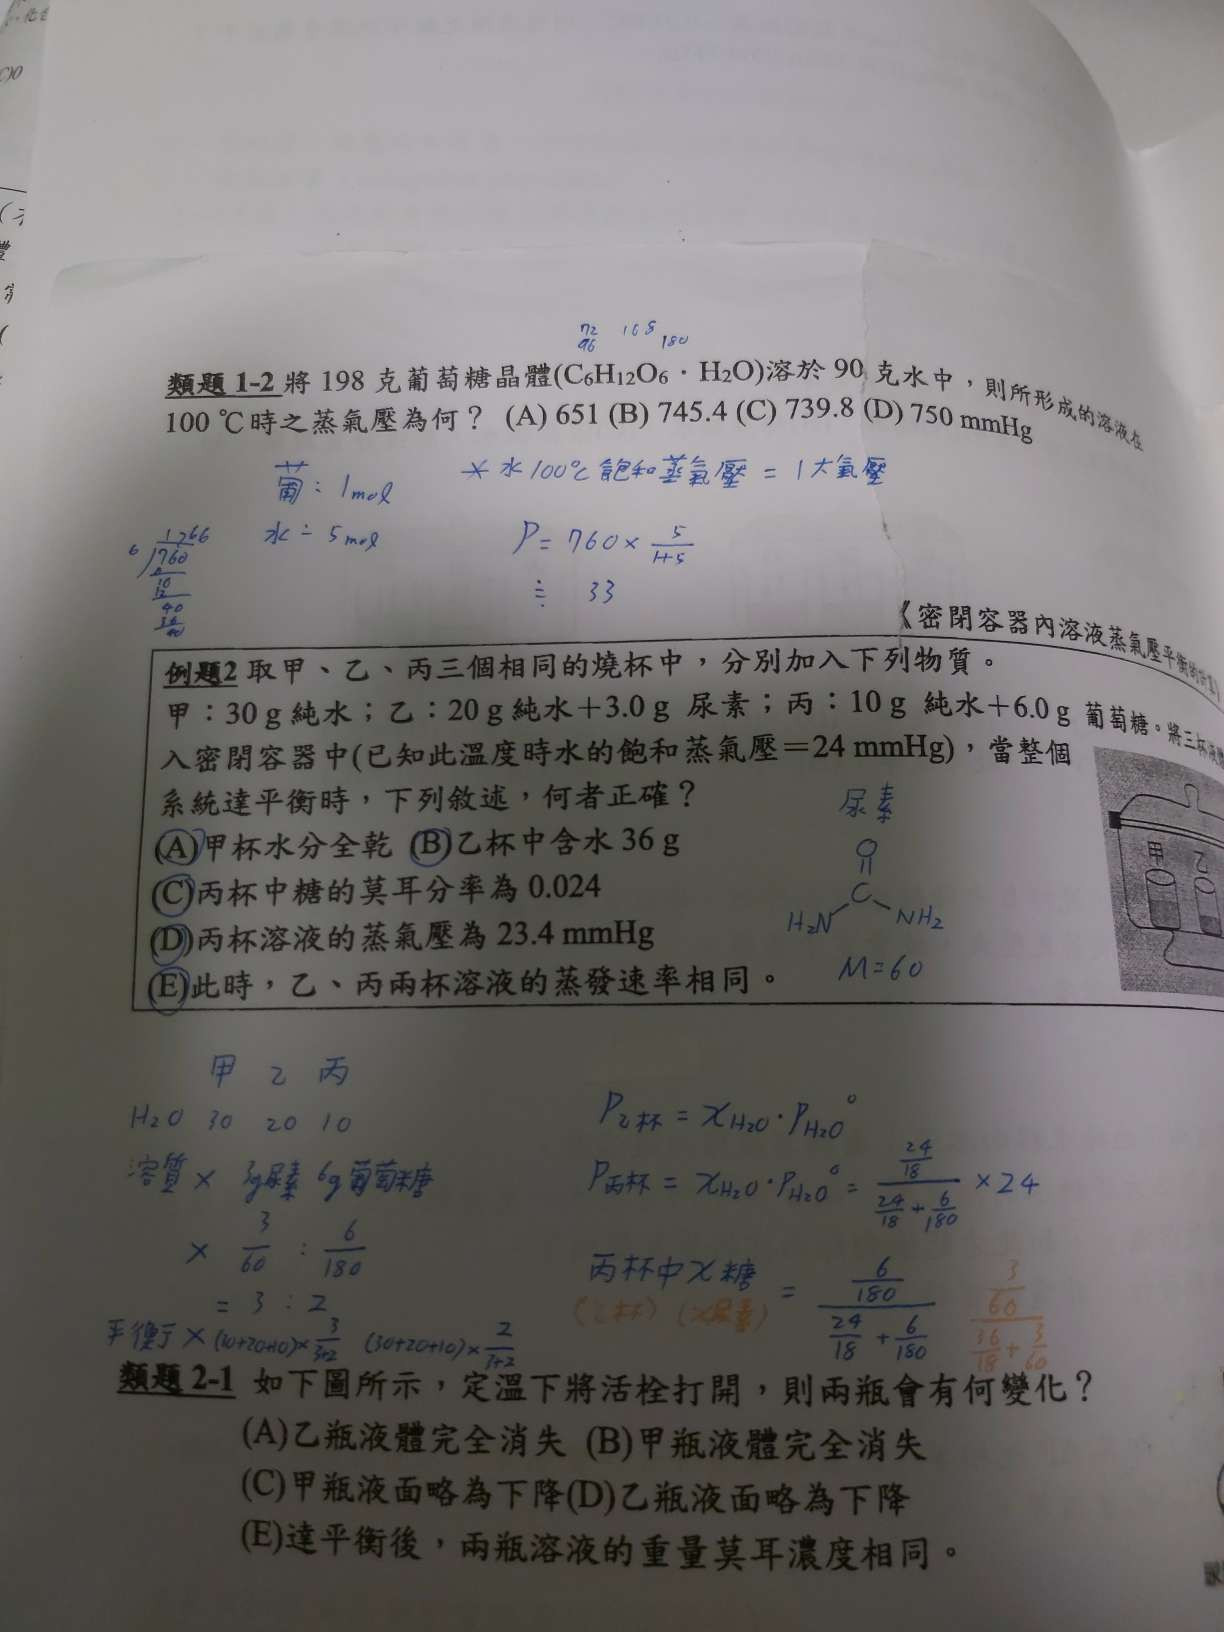 72 108
96 180
類題 1-2 將 198 克葡萄糖晶體(C6H12O6．H2O)溶於 90 克水中，則所形成的溶液在
100 ℃時之蒸氣壓為何？ (A) 651 (B) 745.4 (C) 739.8 (D) 750 mmHg
葡：1mol
＊水100℃飽和蒸氣壓 = 1大氣壓
水 = 5mol
P = 760 × 5/1+5
≒ 633
《密閉容器內溶液蒸氣壓平衡的計算》
例題2 取甲、乙、丙三個相同的燒杯中，分別加入下列物質。
甲：30 g 純水；乙：20 g 純水＋3.0 g 尿素；丙：10 g 純水＋6.0 g 葡萄糖。將三杯液
入密閉容器中(已知此溫度時水的飽和蒸氣壓＝24 mmHg)，當整個
系統達平衡時，下列敘述，何者正確？
(A)甲杯水分全乾 (B)乙杯中含水 36 g
(C)丙杯中糖的莫耳分率為 0.024
(D)丙杯溶液的蒸氣壓為 23.4 mmHg
(E)此時，乙、丙兩杯溶液的蒸發速率相同。
尿素
O
C
H2N NH2
M=60
甲 乙
甲 乙 丙
H2O 30 20 10
溶質 × 3g尿素 6g葡萄糖
× 3/60 : 6/180
= 3 : 2
平衡 × (30+20+10)× 3/3+2 (30+20+10)× 2/3+2
P乙杯 = XH2O · PH2O°
P丙杯 = XH2O · PH2O° = 24/18 / 24/18 + 6/180 × 24
丙杯中X糖 = 6/180 / 24/18 + 6/180
(乙杯) (X尿素) 3/60 / 36/18 + 3/60
類題 2-1 如下圖所示，定溫下將活栓打開，則兩瓶會有何變化？
(A)乙瓶液體完全消失 (B)甲瓶液體完全消失
(C)甲瓶液面略為下降(D)乙瓶液面略為下降
(E)達平衡後，兩瓶溶液的重量莫耳濃度相同。